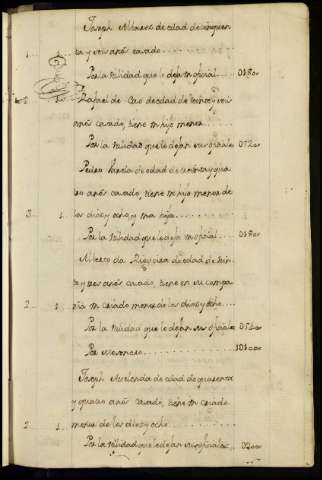 Joseph Alvarez de edad de cinquen
1. 1. ta y seis años casado
Por la Utilidad que le deja su oficial 0180
Rafael de Cao de edad de treinta y seis
años casado, tiene un hijo menor
Por la Utilidad que le dejan sus oficiales
Pedro Garcia de edad de treinta y qua
tro años casado, tiene un hijo menor de
3. 1. los diez y ocho, y una hija
Por la Utilidad que le deja su oficial 0180
Alberto da Rigueira de edad de
y tres años casado, tiene en su compa
2. 1. ñia un criado menor de los diez y ocho
Por la Utilidad que le dejan sus oficiales
Por Mesonero
Joseph de edad de quarenta
y quatro años casado, tiene un criado
2. 1. menor de los diez y ocho
Por la Utilidad que le dejan sus oficiales